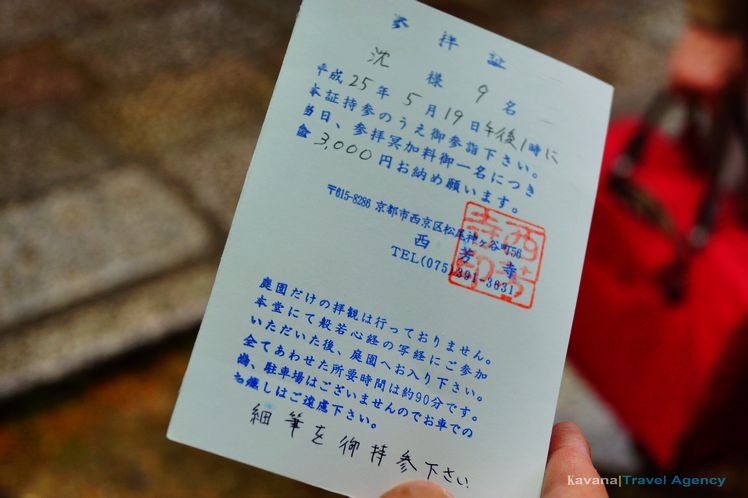 参拝証
沈 様 9 名
平成25年5月19日午後1時に
本証持参のうえ御参詣下さい。
当日、参拝冥加料御一名につき
金3,000円お納め願います。
〒615-8286 京都市西京区松尾神ヶ谷町56
西芳寺
TEL(075)391-3631
西芳寺印
庭園だけの拝観は行っておりません。
本堂にて般若心経の写経にご参加
いただいた後、庭園へお入り下さい。
全てあわせた所要時間は約90分です。
尚、駐車場はございませんのでお車での
お越しはご遠慮下さい。
細筆を御持参下さい
Kavana|Travel Agency